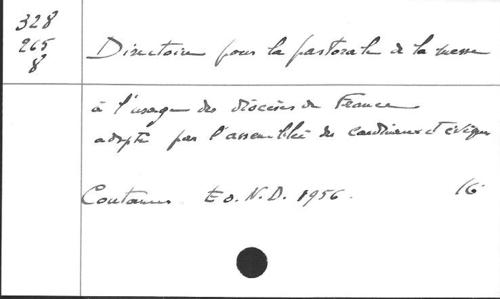 328
265
8
Directoire pour la pastorale de la messe
à l'usage des diocèses de France
adopté par l'assemblée des cardinaux et évêques
Coutances Ed. N.D. 1956. 16